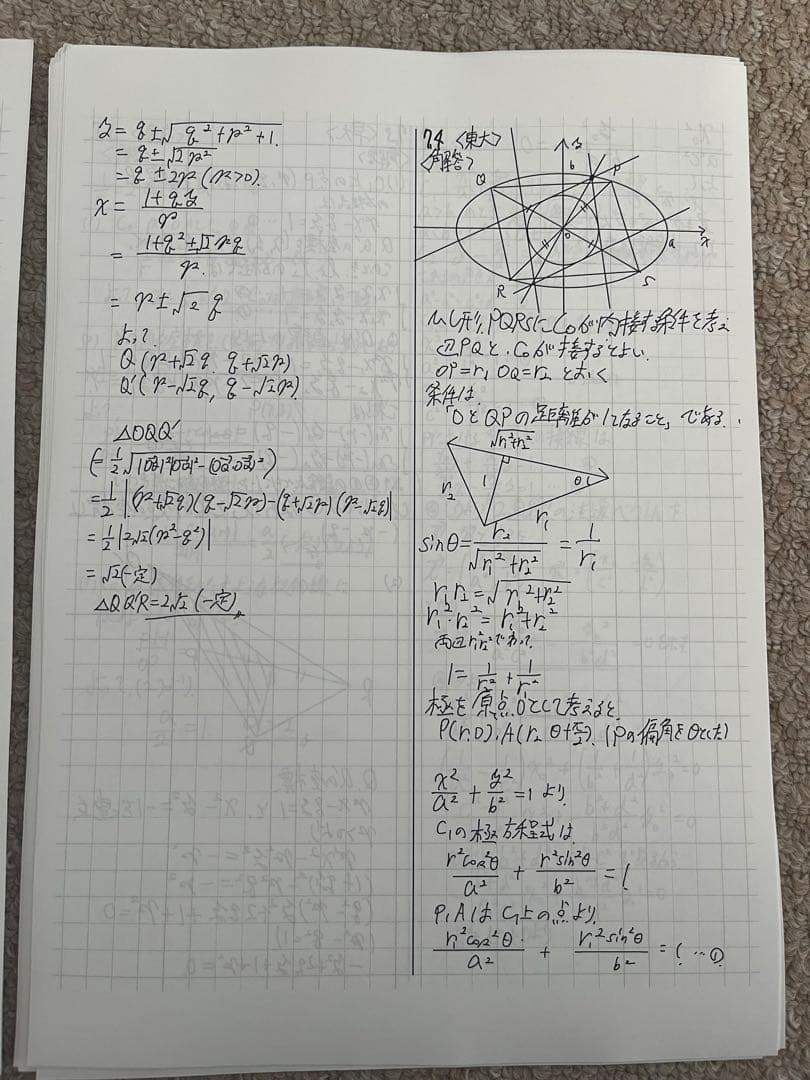 y = q ± √(q²+p²+1)
= q ± √(2p²)
= q ± 2p (p>0).
x = (1+qy)/p
= (1+q²±√2pq)/p
= p ± √2 q
よって
Q (p+√2q, q+√2p)
Q'(p-√2q, q-√2p)
△OQQ'
(= 1/2 √(|OQ|²|OQ'|²-(OQ・OQ')²))
= 1/2 |(p+√2q)(q-√2p)-(q+√2p)(p-√2q)|
= 1/2 |2√2(p²-q²)|
= √2 (一定)
△QQ'R = 2√2 (一定)
74 <東大>
<解答>
y
b
P
Q
O
a
x
R
S
ひし形PQRSにC₀が内接する条件を考え
辺PQと、C₀が接するとよい.
OP=r₁ OQ=r₂ とおく
条件は
「OとQPの距離が1になること」である.
√(r₁²+r₂²)
r₂
1
θ
r₁
sinθ = r₂/√(r₁²+r₂²) = 1/r₁
r₁r₂ = √(r₁²+r₂²)
r₁²・r₂² = r₁²+r₂²
両辺r₁²r₂²でわって
1 = 1/r₂² + 1/r₁²
極を原点Oとして考えると
P(r₁θ), A(r₂ θ+π/2). (Pの偏角をθとした)
x²/a² + y²/b² = 1 より
C₁の極方程式は
r²cos²θ/a² + r²sin²θ/b² = 1
P, AはC₁上の点より
r₁²cos²θ/a² + r₁²sin²θ/b² = 1 …①